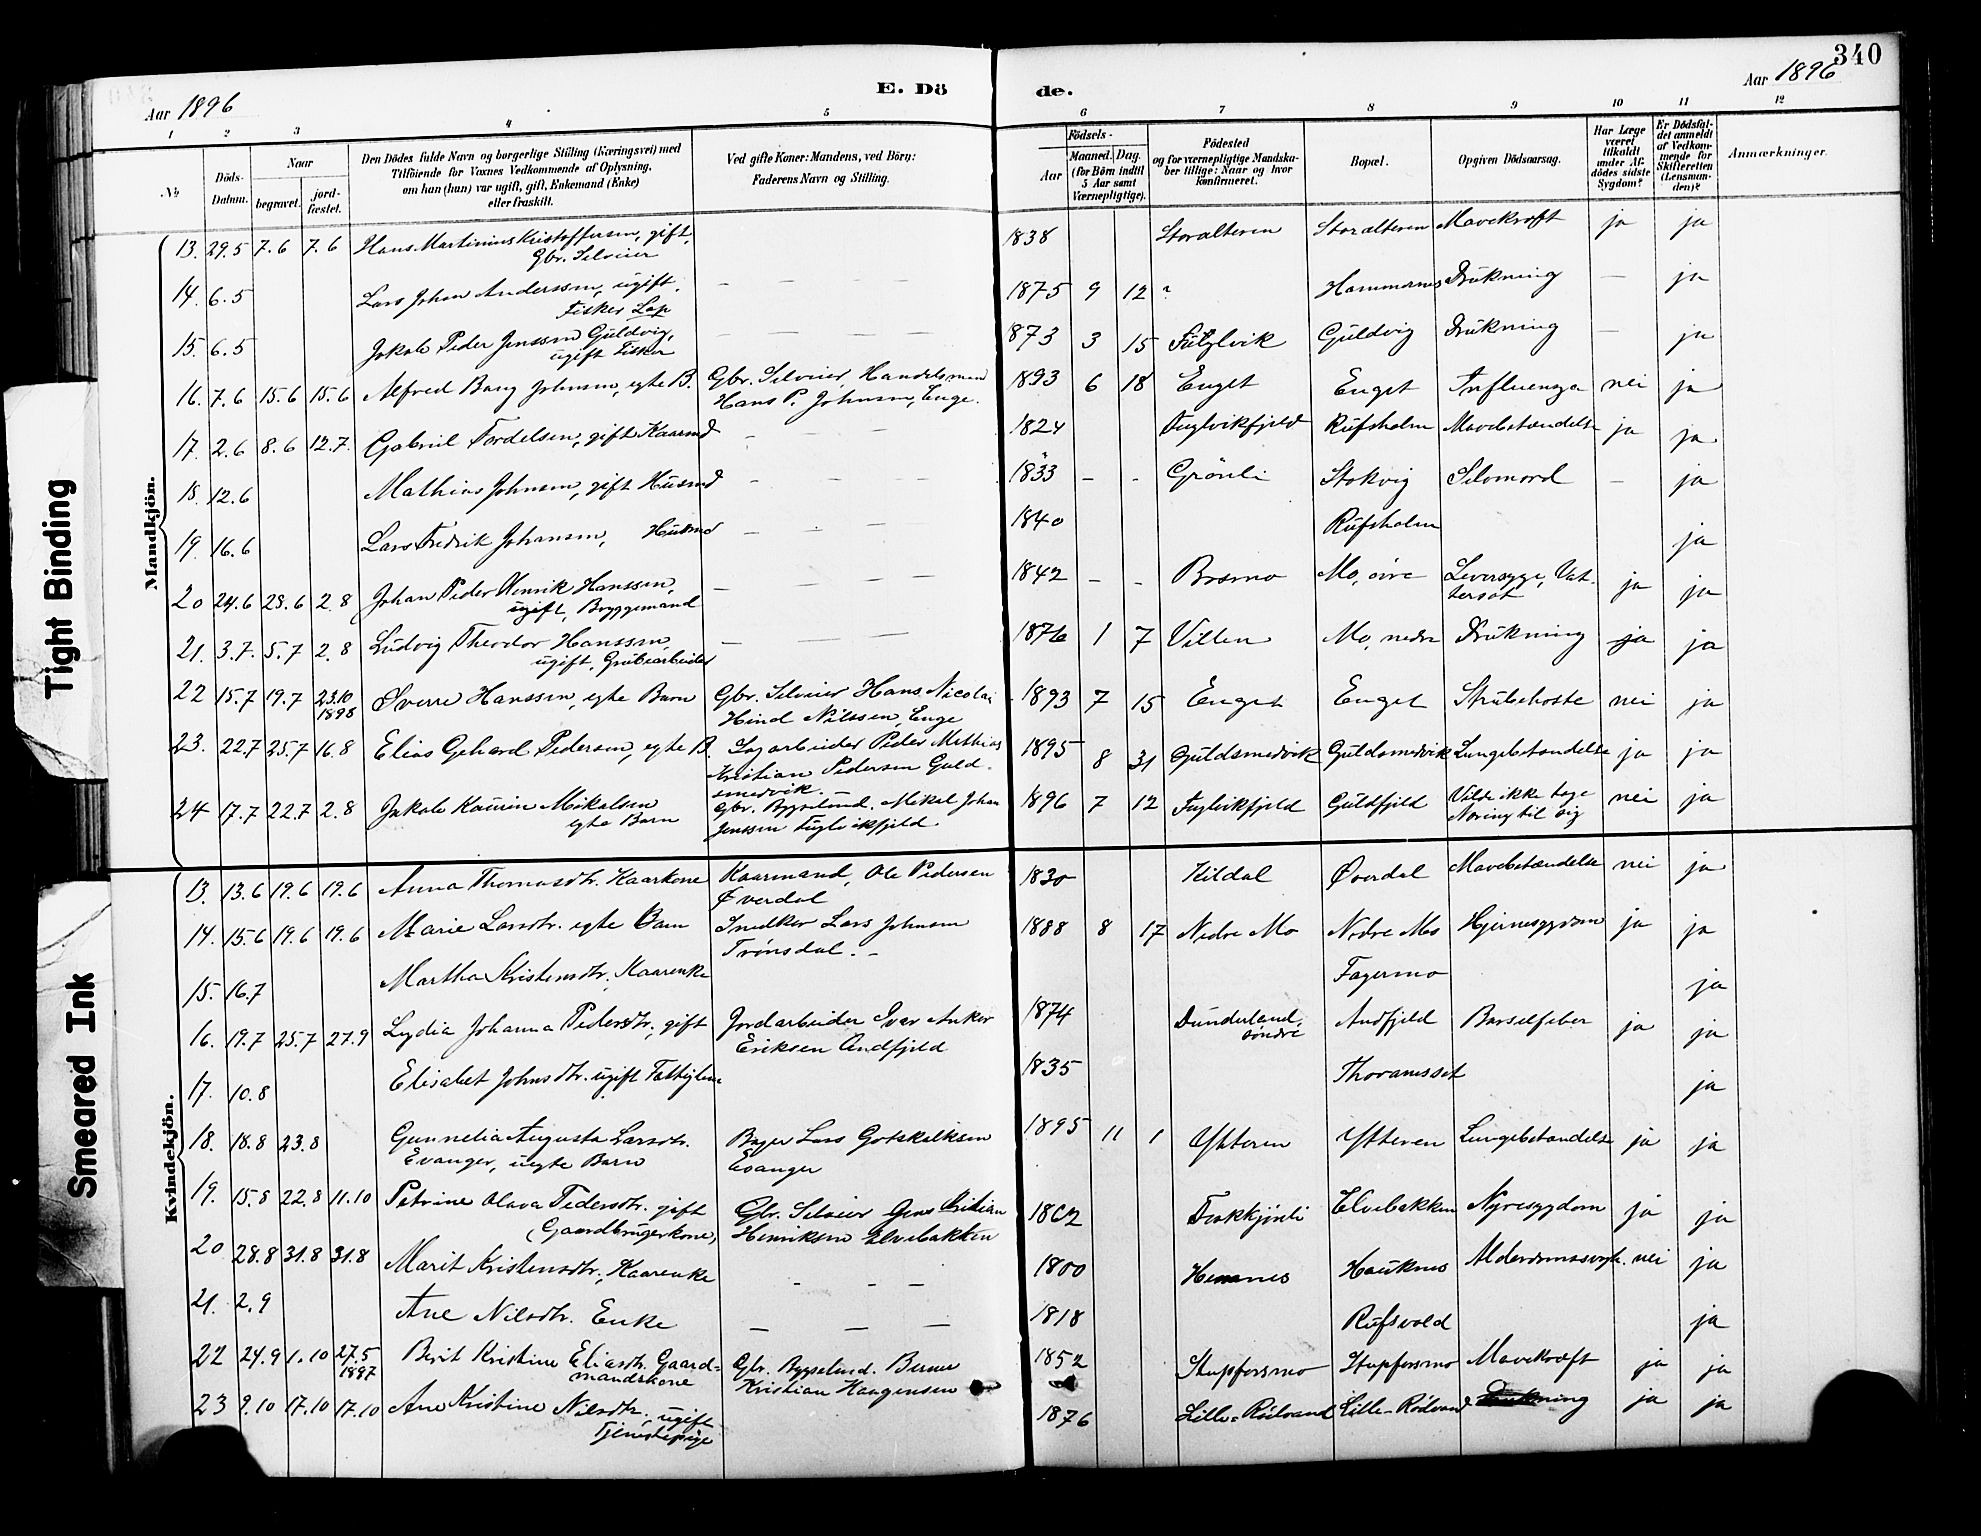 340
Aar 1896
E. Dö
de.
Aar 1896
1 2 3 4 5 6 7 8 9 10 11 12
No.
Döds-Datum.
Naar
begravet.
jord-fæstet.
Den Dödes fulde Navn og borgerlige Stilling (Næringsvei) med
Tilföiende for Voxnes Vedkommende af Oplysning,
om han (hun) var ugift, gift, Enkemand (Enke)
eller fraskilt.
Ved gifte Koner: Mandens, ved Börn:
Faderens Navn og Stilling.
Födsels-
Aar
Maaned. Dag.
(for Börn indtil
5 Aar samt
Værnepligtige).
Födested
og for værnepligtige Mandska-
ber tillige: Naar og hvor
konfirmeret.
Bopæl.
Opgiven Dödsaarsag.
Har Læge
været
tilkaldt
under Af-
dödes sidste
Sygdom?
Er Dödsfal-
det anmeldt
af Vedkom-
mende for
Skifteretten
(Lensman-
den)?
Anmærkninger.
Mandkjön.
13. 29.5 7.6 7.6 Hans Martinius Kristoffersen, gift, 1838 Storalteren Storalteren Mavekræft ja ja
Gbr. Selveier
14. 6.5 Lars Johan Anderssen, ugift. — — — 1875 9 12 ? Hammernes Drukning — ja
Fisker Lap
15. 6.5 Jakob Peder Jenssen Guldvig, — — — 1873 3 15 Fuglvik Guldvig Drukning — ja
ugift Fisker
16. 7.6 15.6 15.6 Alfred Bang Johnsen, egte B. Gbr. Selveier, Handelsmand 1893 6 18 Enget Enget Influenza nei ja
Hans P. Johnsen, Enge.
17. 2.6 8.6 12.7 Gabriel Tordelsen, gift Kaarmd - - 1824 Fuglvikfjeld Rufsholm Mavebetændelse ja ja
18. 12.6 Mathias Johnsen, gift Husmd - - - 1833 - - Grönli Stokvig Selvmord - ja
19. 16.6 Lars Fredrik Johansen, Husmd - - - 1840 Rufsholm ja
20 24.6 28.6 2.8 Johan Peder Henrik Hanssen, — — — 1842 - - Bosmo Mo, övre Leversyge, Vat- ja ja
ugift, Bryggemand
tersot
21. 3.7. 5.7 2.8 Ludvig Theodor Hanssen, — — — 1876 1 7 Villen Mo, nedre Drukning ja ja
ugift, Grubearbeider
22 15.7 19.7 23.10 Sverre Hanssen, egte Barn Gbr. Selveier Hans Nicolai 1893 7 15 Enget Enget Strubehoste nei ja
1898
Hind Nilssen, Enge
23. 22.7 25.7 16.8 Elias Gehard Pedersen, egte B. Sagarbeider Peder Mathias 1895 8 31 Guldsmedvik Guldsmedvik Lungebetændelse ja ja
Kristian Pedersen Guld-
smedvik.
24 17.7 22.7 2.8 Jakob Kaurin Mikalsen Gbr. Bygselmd. Mikal Johan 1896 7 12 Fuglvikfjeld Guldfjeld Vilde ikke tage nei ja
egte Barn
Jenssen Fuglvikfjeld.
Næring til sig
Kvindekjön.
13. 13.6 19.6 19.6 Anna Thomasdtr. Kaarkone Kaarmand, Ole Pedersen 1830 Kildal Øverdal Mavebetændelse nei ja
Øverdal
14. 15.6 19.6 19.6 Marie Larsdtr. egte Barn Snedker Lars Johnsen 1888 8 17 Nedre Mo Nedre Mo Hjernesygdom ja ja
Trönsdal. -
15. 16.7 Martha Kristensdtr. Kaarenke Fagermo ja
16. 19.7 25.7 27.9 Lydia Johanna Pedersdtr, gift Jordarbeider Ivar Anker 1874 Dunderland, Andfjeld Barselfeber ja ja
Eriksen Andfjeld
söndre
17. 10.8 Elisabet Johnsdtr. ugift Fattiglem 1835 Thoranesset ja
18. 18.8 23.8 Gunnelia Augusta Larsdtr. Bager Lars Gotskalksen 1895 11 1 Ytteren Ytteren Lungebetændelse ja ja
Evanger, uegte Barn
Evanger
19. 15.8 22.8 11.10 Petrine Olava Pedersdtr, gift Gbr. Selveier Jens Kristian 1862 Elvebakken Nyresygdom ja ja
(Gaardbrugerkone)
Henriksen Elvebakken
20. 28.8 31.8 31.8 Marit Kristensdtr, Kaarenke - - - 1800 Hemnes Hauknes Alderdomssvagh. nei ja
21. 2.9 Ane Nilsdtr. Enke — — — 1818 Rufsvold ja
22 24.9 1.10 27.5 Berit Kristine Eliasdtr. Gaard= Gbr. Bygselmd. Bernt 1852 Stupforsmo Stupforsmo Mavekræft ja ja
1897
mandskone
Kristian Haagensen
23 9.10 17.10 17.10 Ane Kristine Nilsdtr, ugift 1876 Lille-Rödvand Lille-Rödvand Drukning ja ja
Tjenestepige
Tight Binding
Smeared Ink